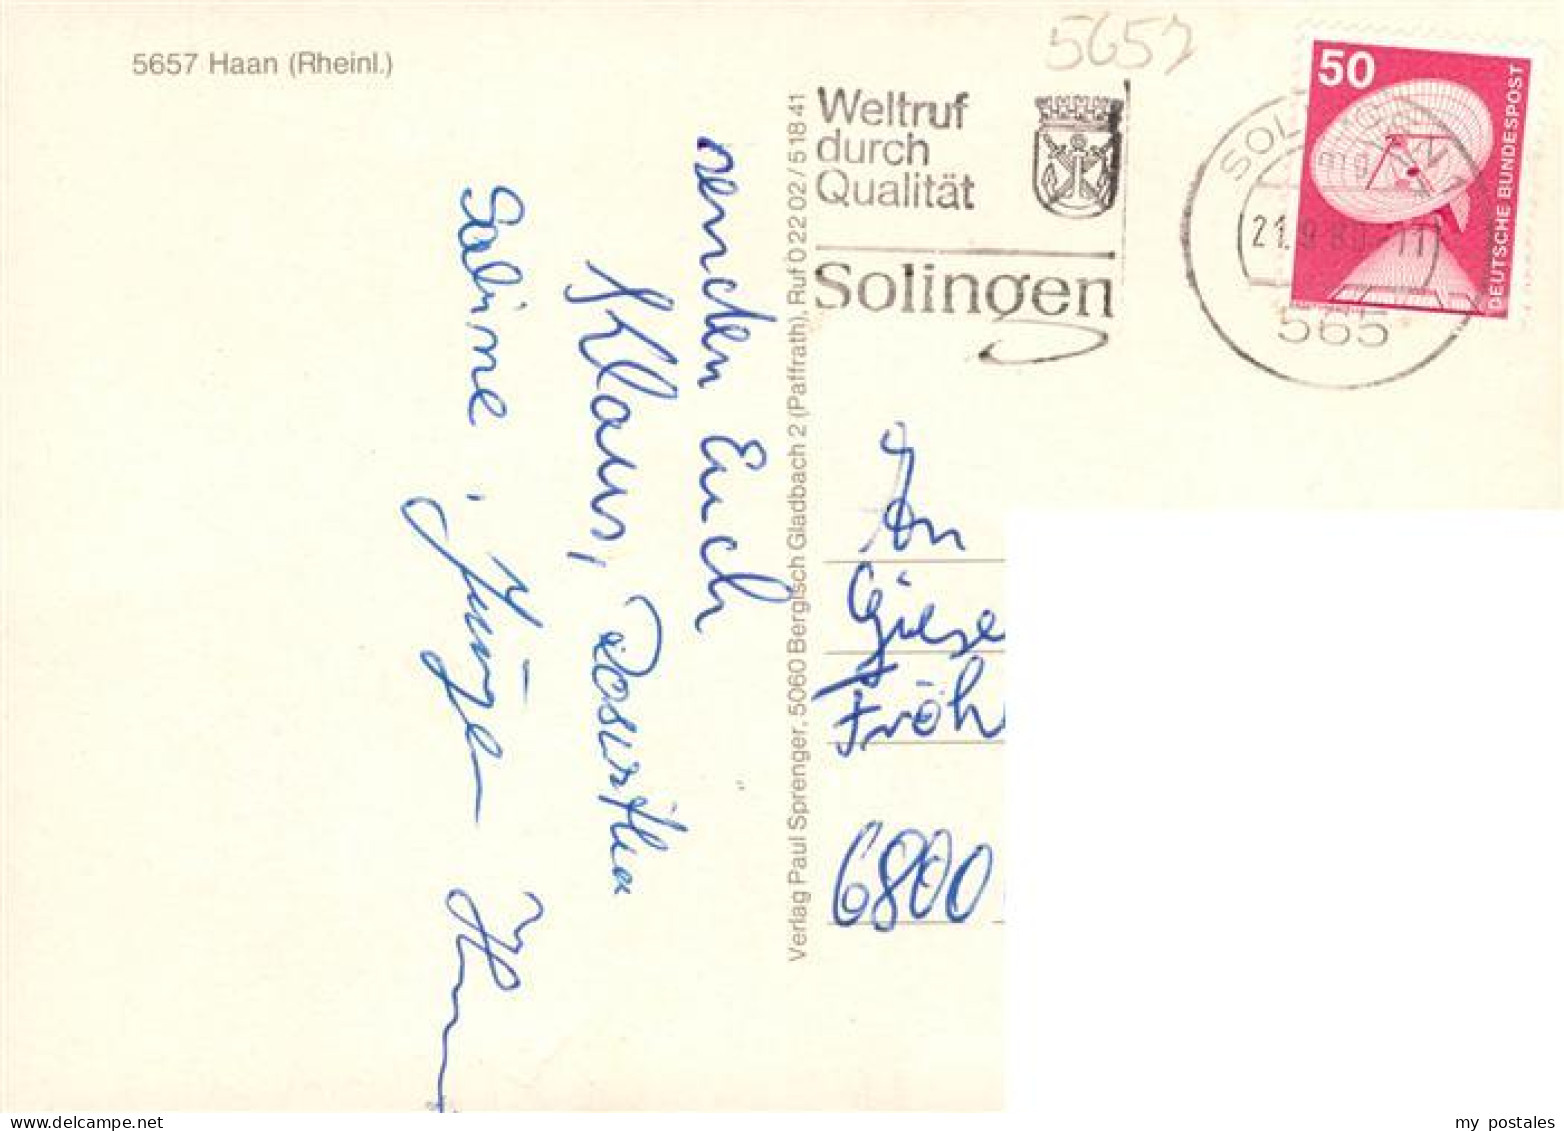 5657 Haan (Rheinl.)
5657
Weltruf
durch
Qualität
Solingen
50
DEUTSCHE BUNDESPOST
21.9.80-11
565
Verlag Paul Sprenger, 5060 Bergisch Gladbach 2 (Paffrath), Ruf 0 22 02 / 5 18 41
senden Euch
Klaus,
Sabine,
An
Giese
Fröh
6800
my postales